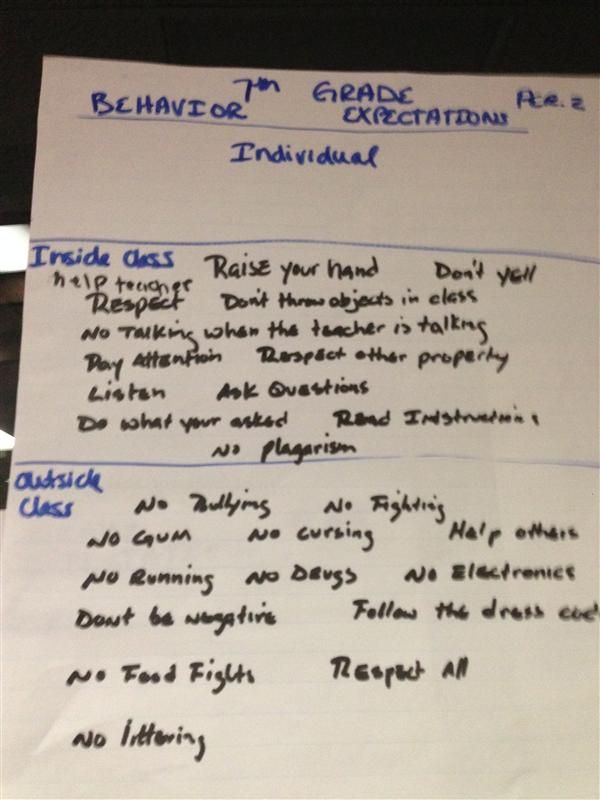 7th GRADE PER. 2
BEHAVIOR EXPECTATIONS
Individual
Inside Class Raise your hand Don't yell
help teacher
Respect Don't throw objects in class
No Talking when the teacher is talking
Pay Attention Respect other property
Listen Ask Questions
Do what your asked Read Instructions
No plagarism
Outside
Class No Bullying No Fighting
No Gum No cursing Help others
No Running No Drugs No Electronics
Dont be negative Follow the dress cod
No Food Fights Respect All
No littering